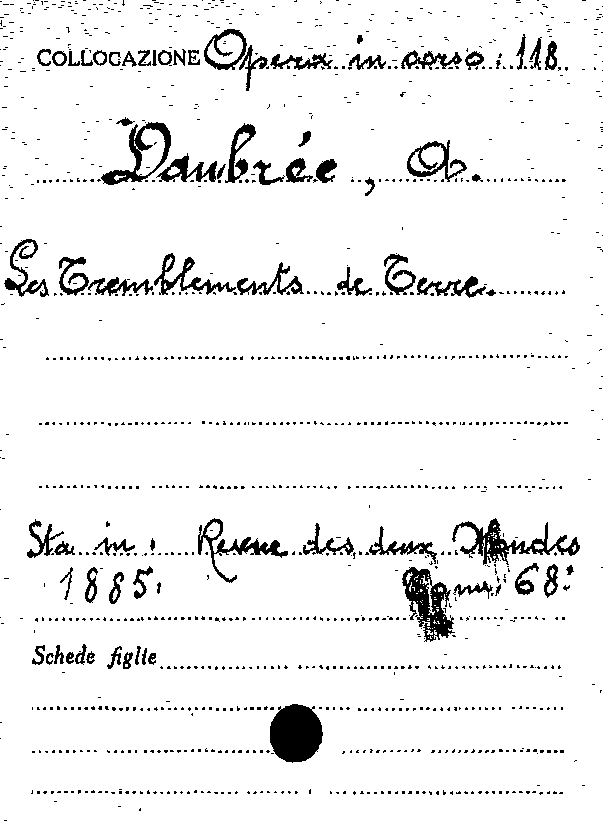 COLLOCAZIONE Opera in corso: 118
Daubrée, A.
Les Tremblements de Terre.
Sta in: Revue des deux Mondes
1885. Tome 68º
Schede figlie